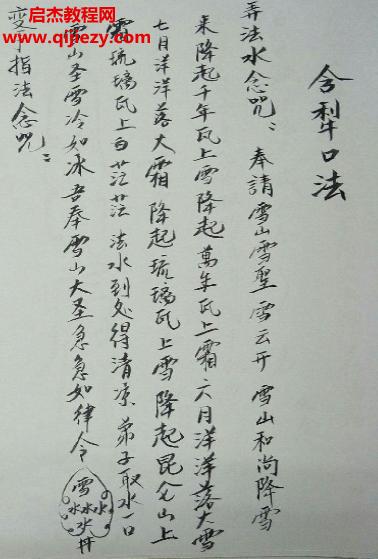 启杰教程网
www.qijiezy.com
含犁口法
弄法水念咒：奉請雪山雪聖雪云开 雪山和尚降雪
来降起千年瓦上雪降起萬年瓦上霜六月洋洋落大雪
七月洋洋落大霜 降起琉璃瓦上雪降起昆仑山上
霜琉璃瓦上白茫茫 法水到处得清凉 弟子取水一口
雪山圣雪冷如冰吾奉雪山大圣急急如律令 雪水水水
变手指法念咒：